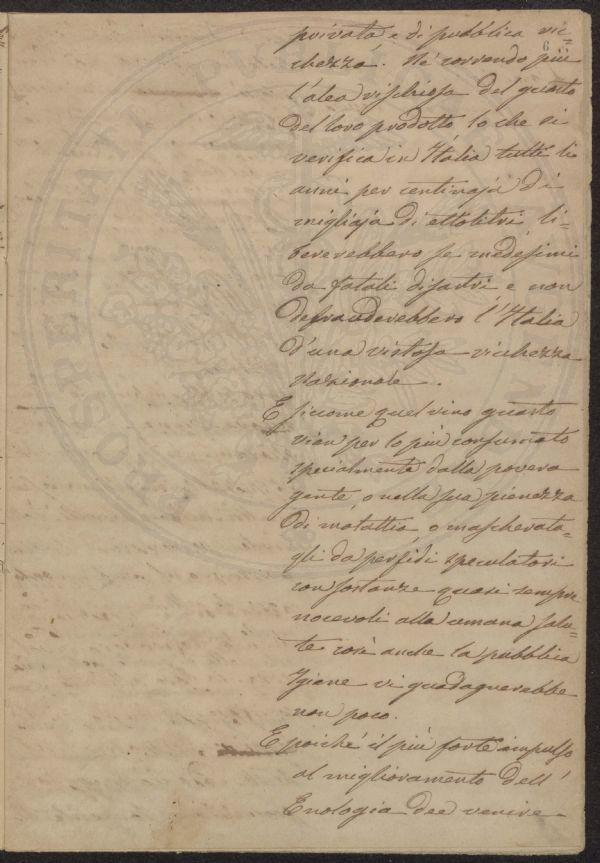 privata e di pubblica ric-
chezza. Nè correndo più
l'alea rischiosa del guasto
del loro prodotto lo che si
verifica in Italia tutti li
anni per centinaja di
migliaja di ettolitri li-
bererebbero se medesimi
da fatali disastri e non
defrauderebbero l'Italia
d'una vistosa ricchezza
nazionale.
E siccome quel vino guasto
vien per lo più consumato
specialmente dalla povera
gente, o nella sua pienezza
di malattia, o mascherata-
gli da perfidi speculatori
con sostanze quasi sempre
nocevoli alla umana salu-
te così anche la pubblica
Igiene vi guadagnerebbe
non poco.
E poiché il più forte impulso
al miglioramento dell'
Enologia dee venire